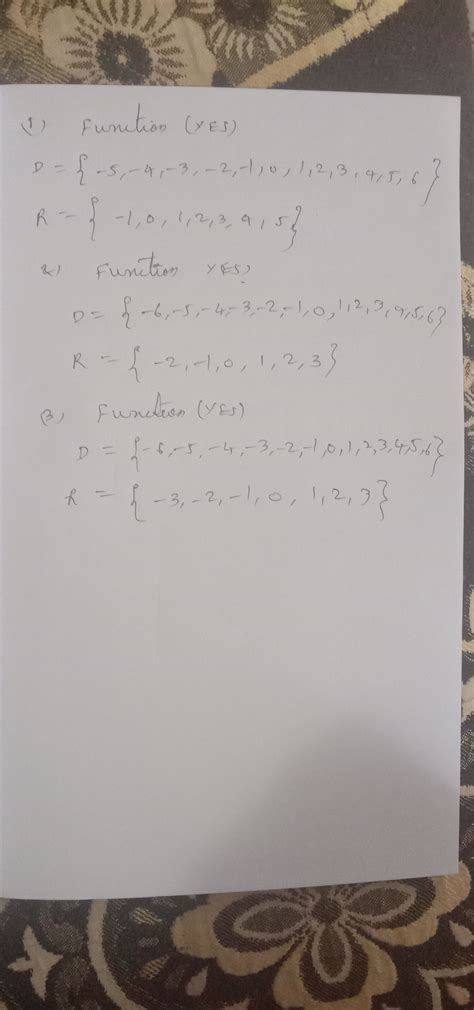 (1) Function (YES)
D = { -5, -4, -3, -2, -1, 0, 1, 2, 3, 4, 5, 6 }
R = { -1, 0, 1, 2, 3, 4, 5 }
2) Function YES)
D = { -6, -5, -4, -3, -2, -1, 0, 1, 2, 3, 4, 5, 6 }
R = { -2, -1, 0, 1, 2, 3 }
(3) Function (YES)
D = { -6, -5, -4, -3, -2, -1, 0, 1, 2, 3, 4, 5, 6 }
R = { -3, -2, -1, 0, 1, 2, 3 }